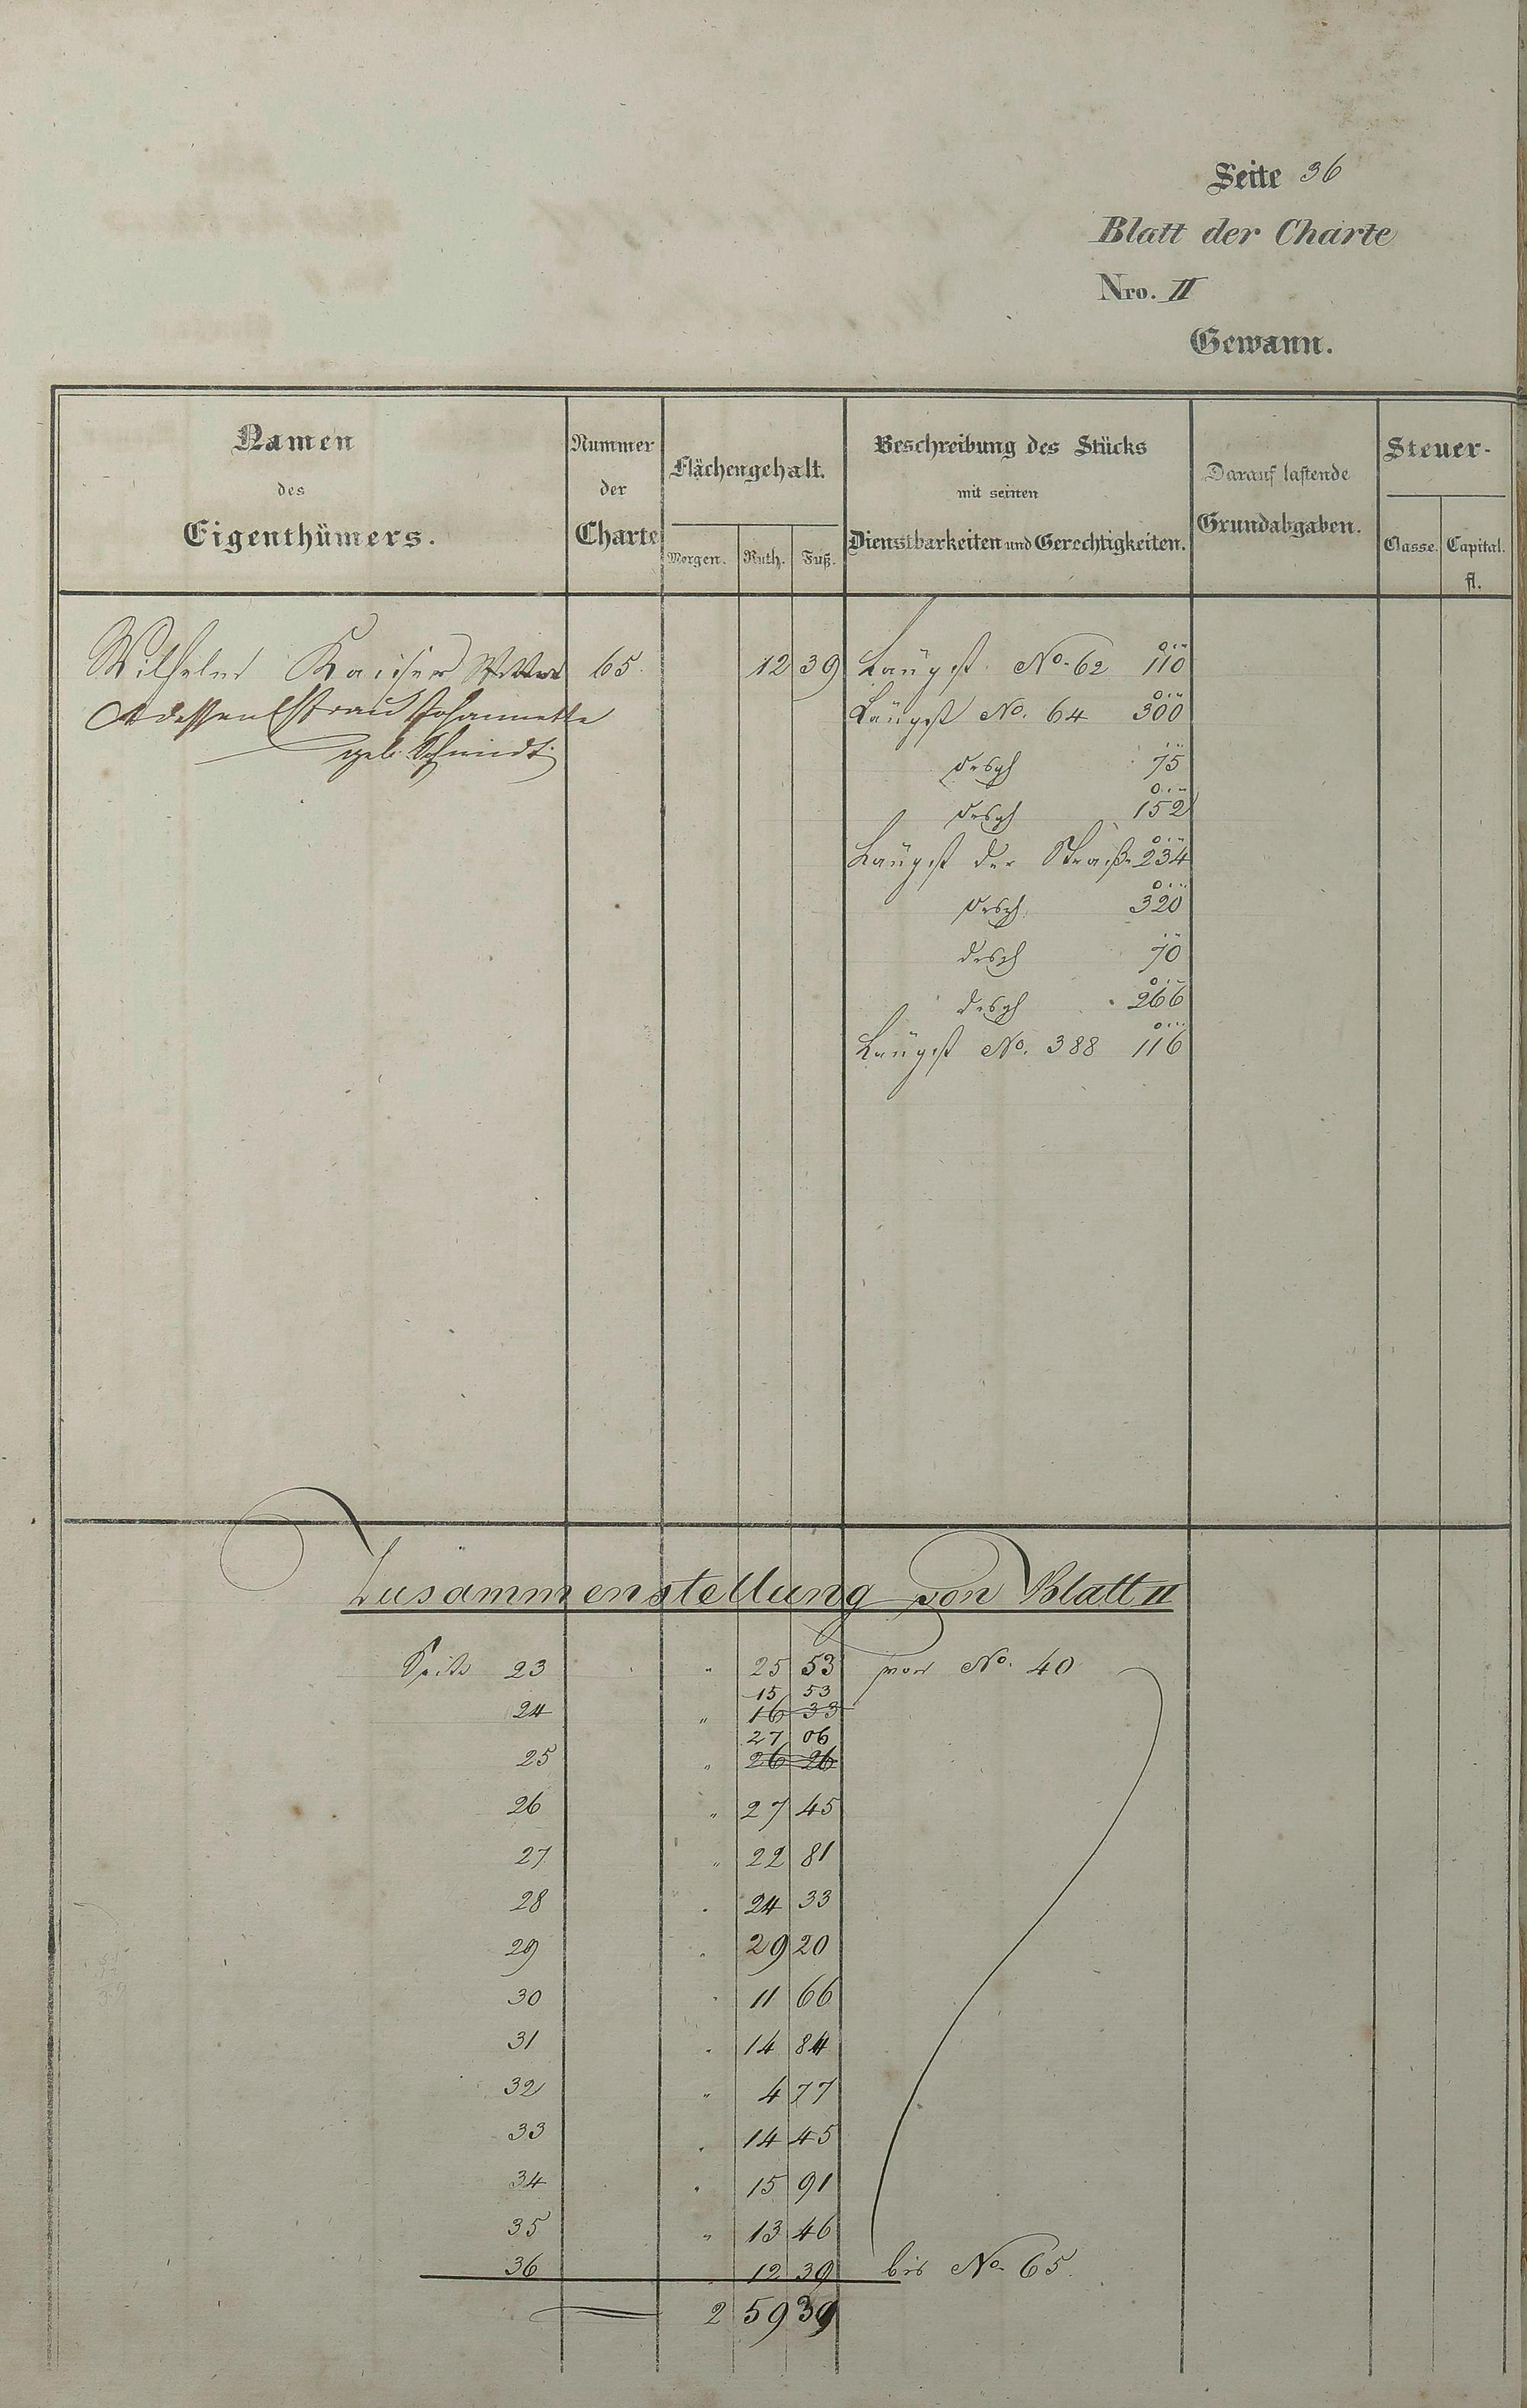 Seite 36
Blatt der Charte
Nro. II
Gewann.
Namen des Eigenthümers.
Nummer der Charte
Flächengehalt.
Morgen. Ruth. Fuß.
Beschreibung des Stücks mit seinen Dienstbarkeiten und Gerechtigkeiten.
Darauf lastende Grundabgaben.
Steuer-
Classe. Capital. fl.
Wilhelm Kaiser 65. 12 39 Längst No. 62 110
dessen Ehfrau Johannette Längst No. 64 300
geb. Schmidt
desgl 75
desgl 152
Längst der Straße 234
desgl. 320
desgl 70
desgl 266
Längst No. 388 116
Zusammenstellung von Blatt II
Seite 23 " 25 53 von No. 40
15 53
24 " 16 33
27 06
25 " 26 26
26 " 27 45
27 " 22 81
28 " 24 33
29 " 29 20
30 " 11 66
31 " 14 84
32 " 4 77
33 " 14 45
34 " 15 91
35 " 13 46
36 12 39 bis No. 65.
2 59 39